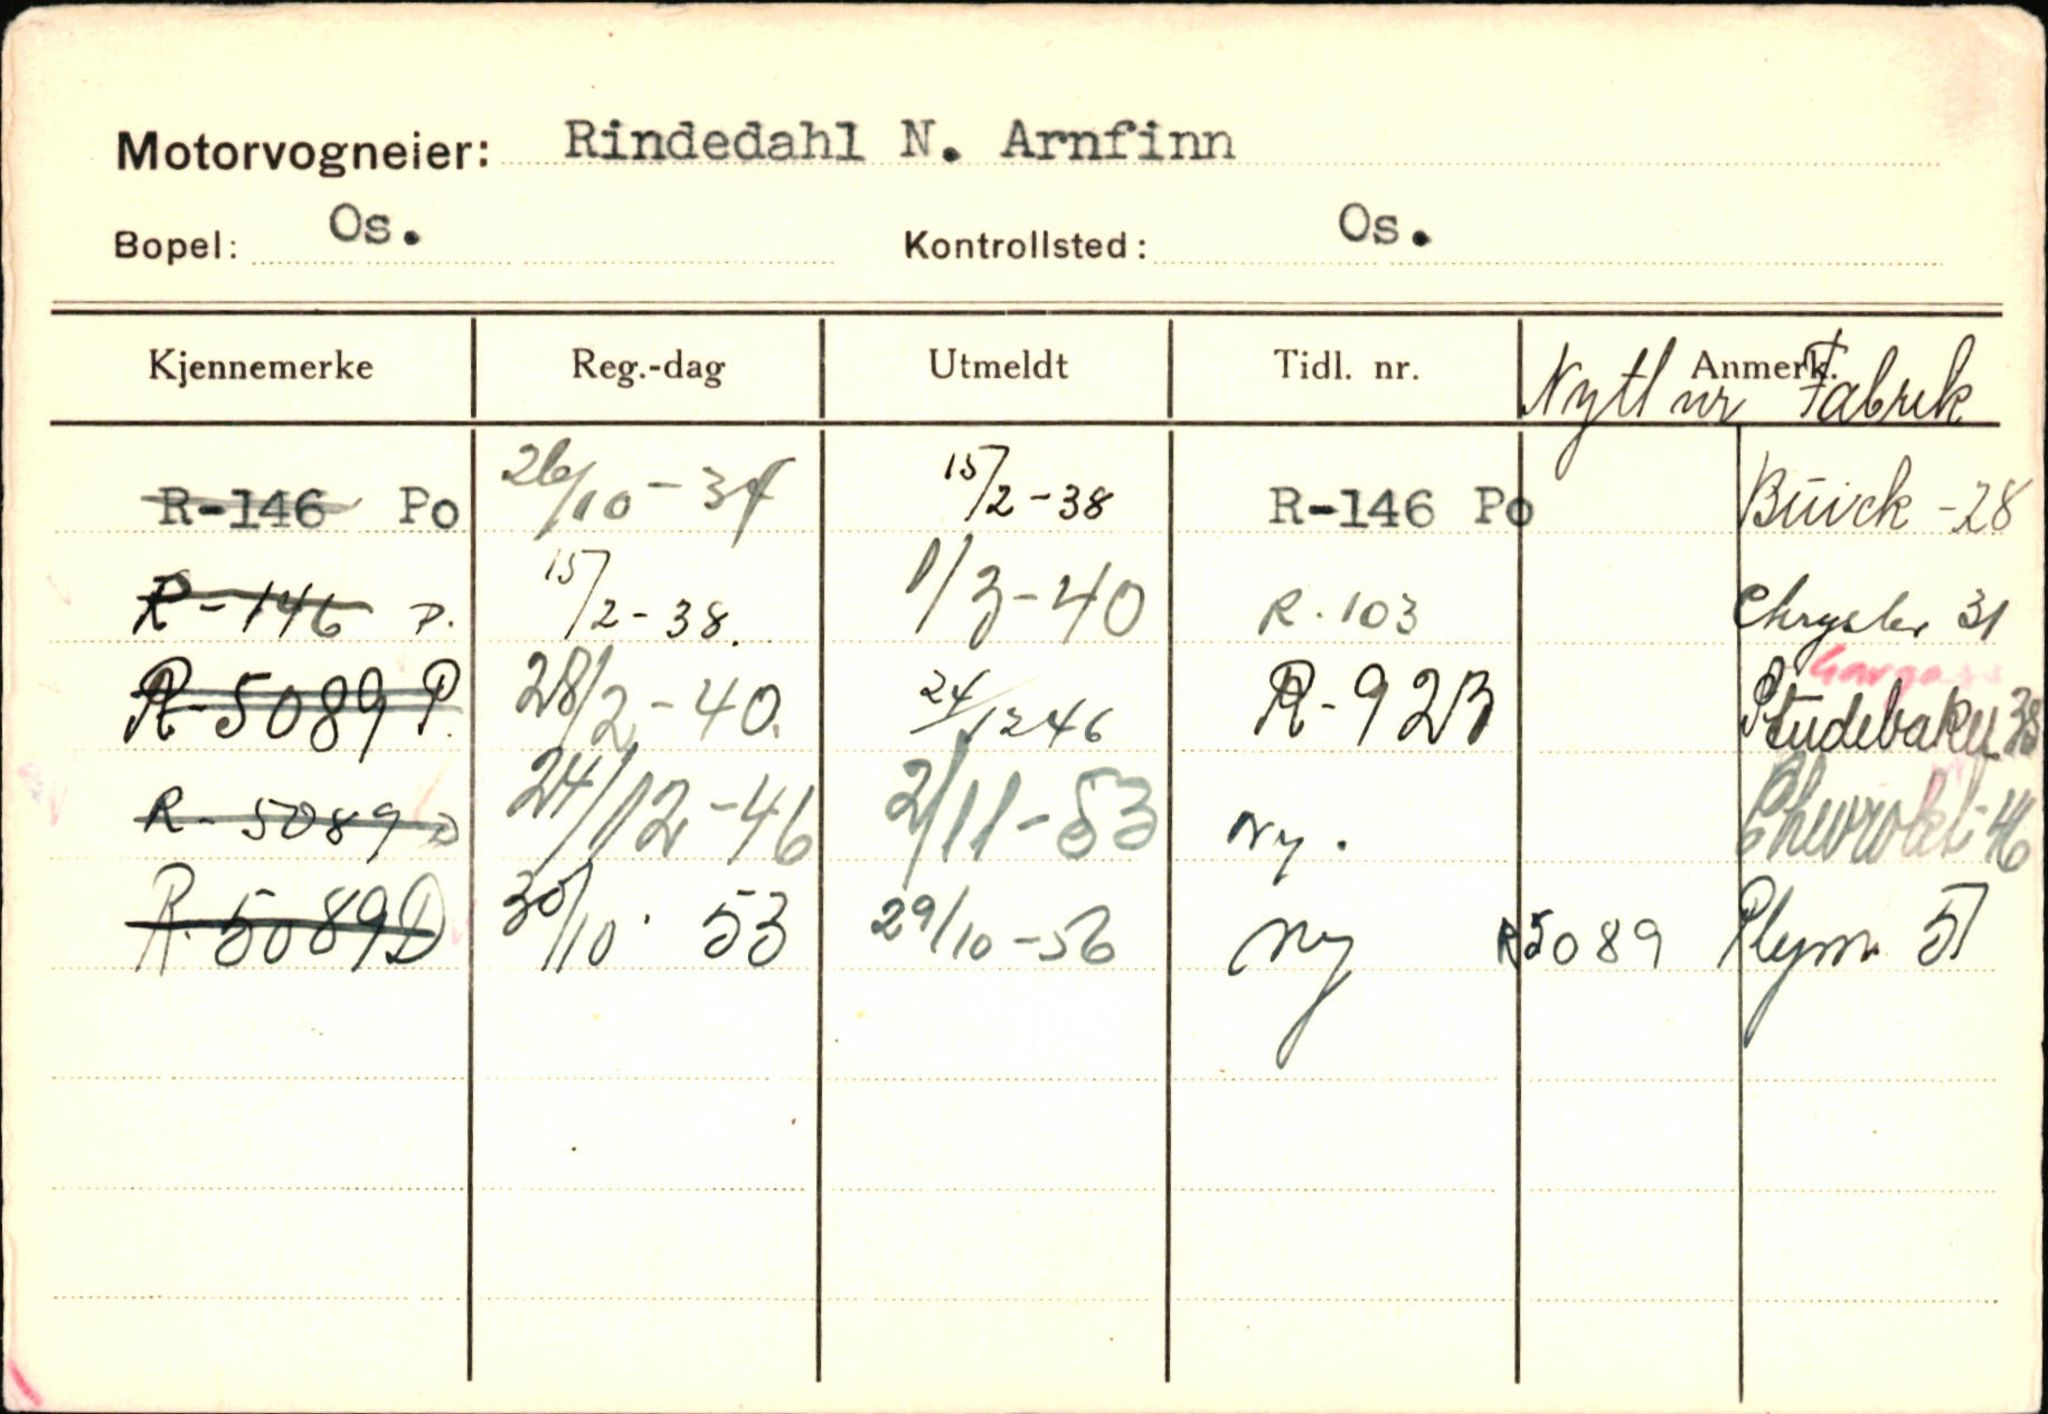 Motorvogneier: Rindedahl N. Arnfinn
Bopel: Os. Kontrollsted: Os.
Kjennemerke Reg.-dag Utmeldt Tidl. nr. Anmerk. Nytt nr Fabrik
R-146 Po 26/10-34 15/2-38 R-146 Po Buick -28
R-146 P. 15/2-38. 1/3-40 R.103 Chrysler 31
R-5089 P. 28/2-40. 24/12 46 R-923 Studebaker 38
R-5089 D 24/12-46 2/11-53 Ny. Chevrolet-46
R.5089 D 30/10. 53 29/10-56 Ny R5089 Plym. 51